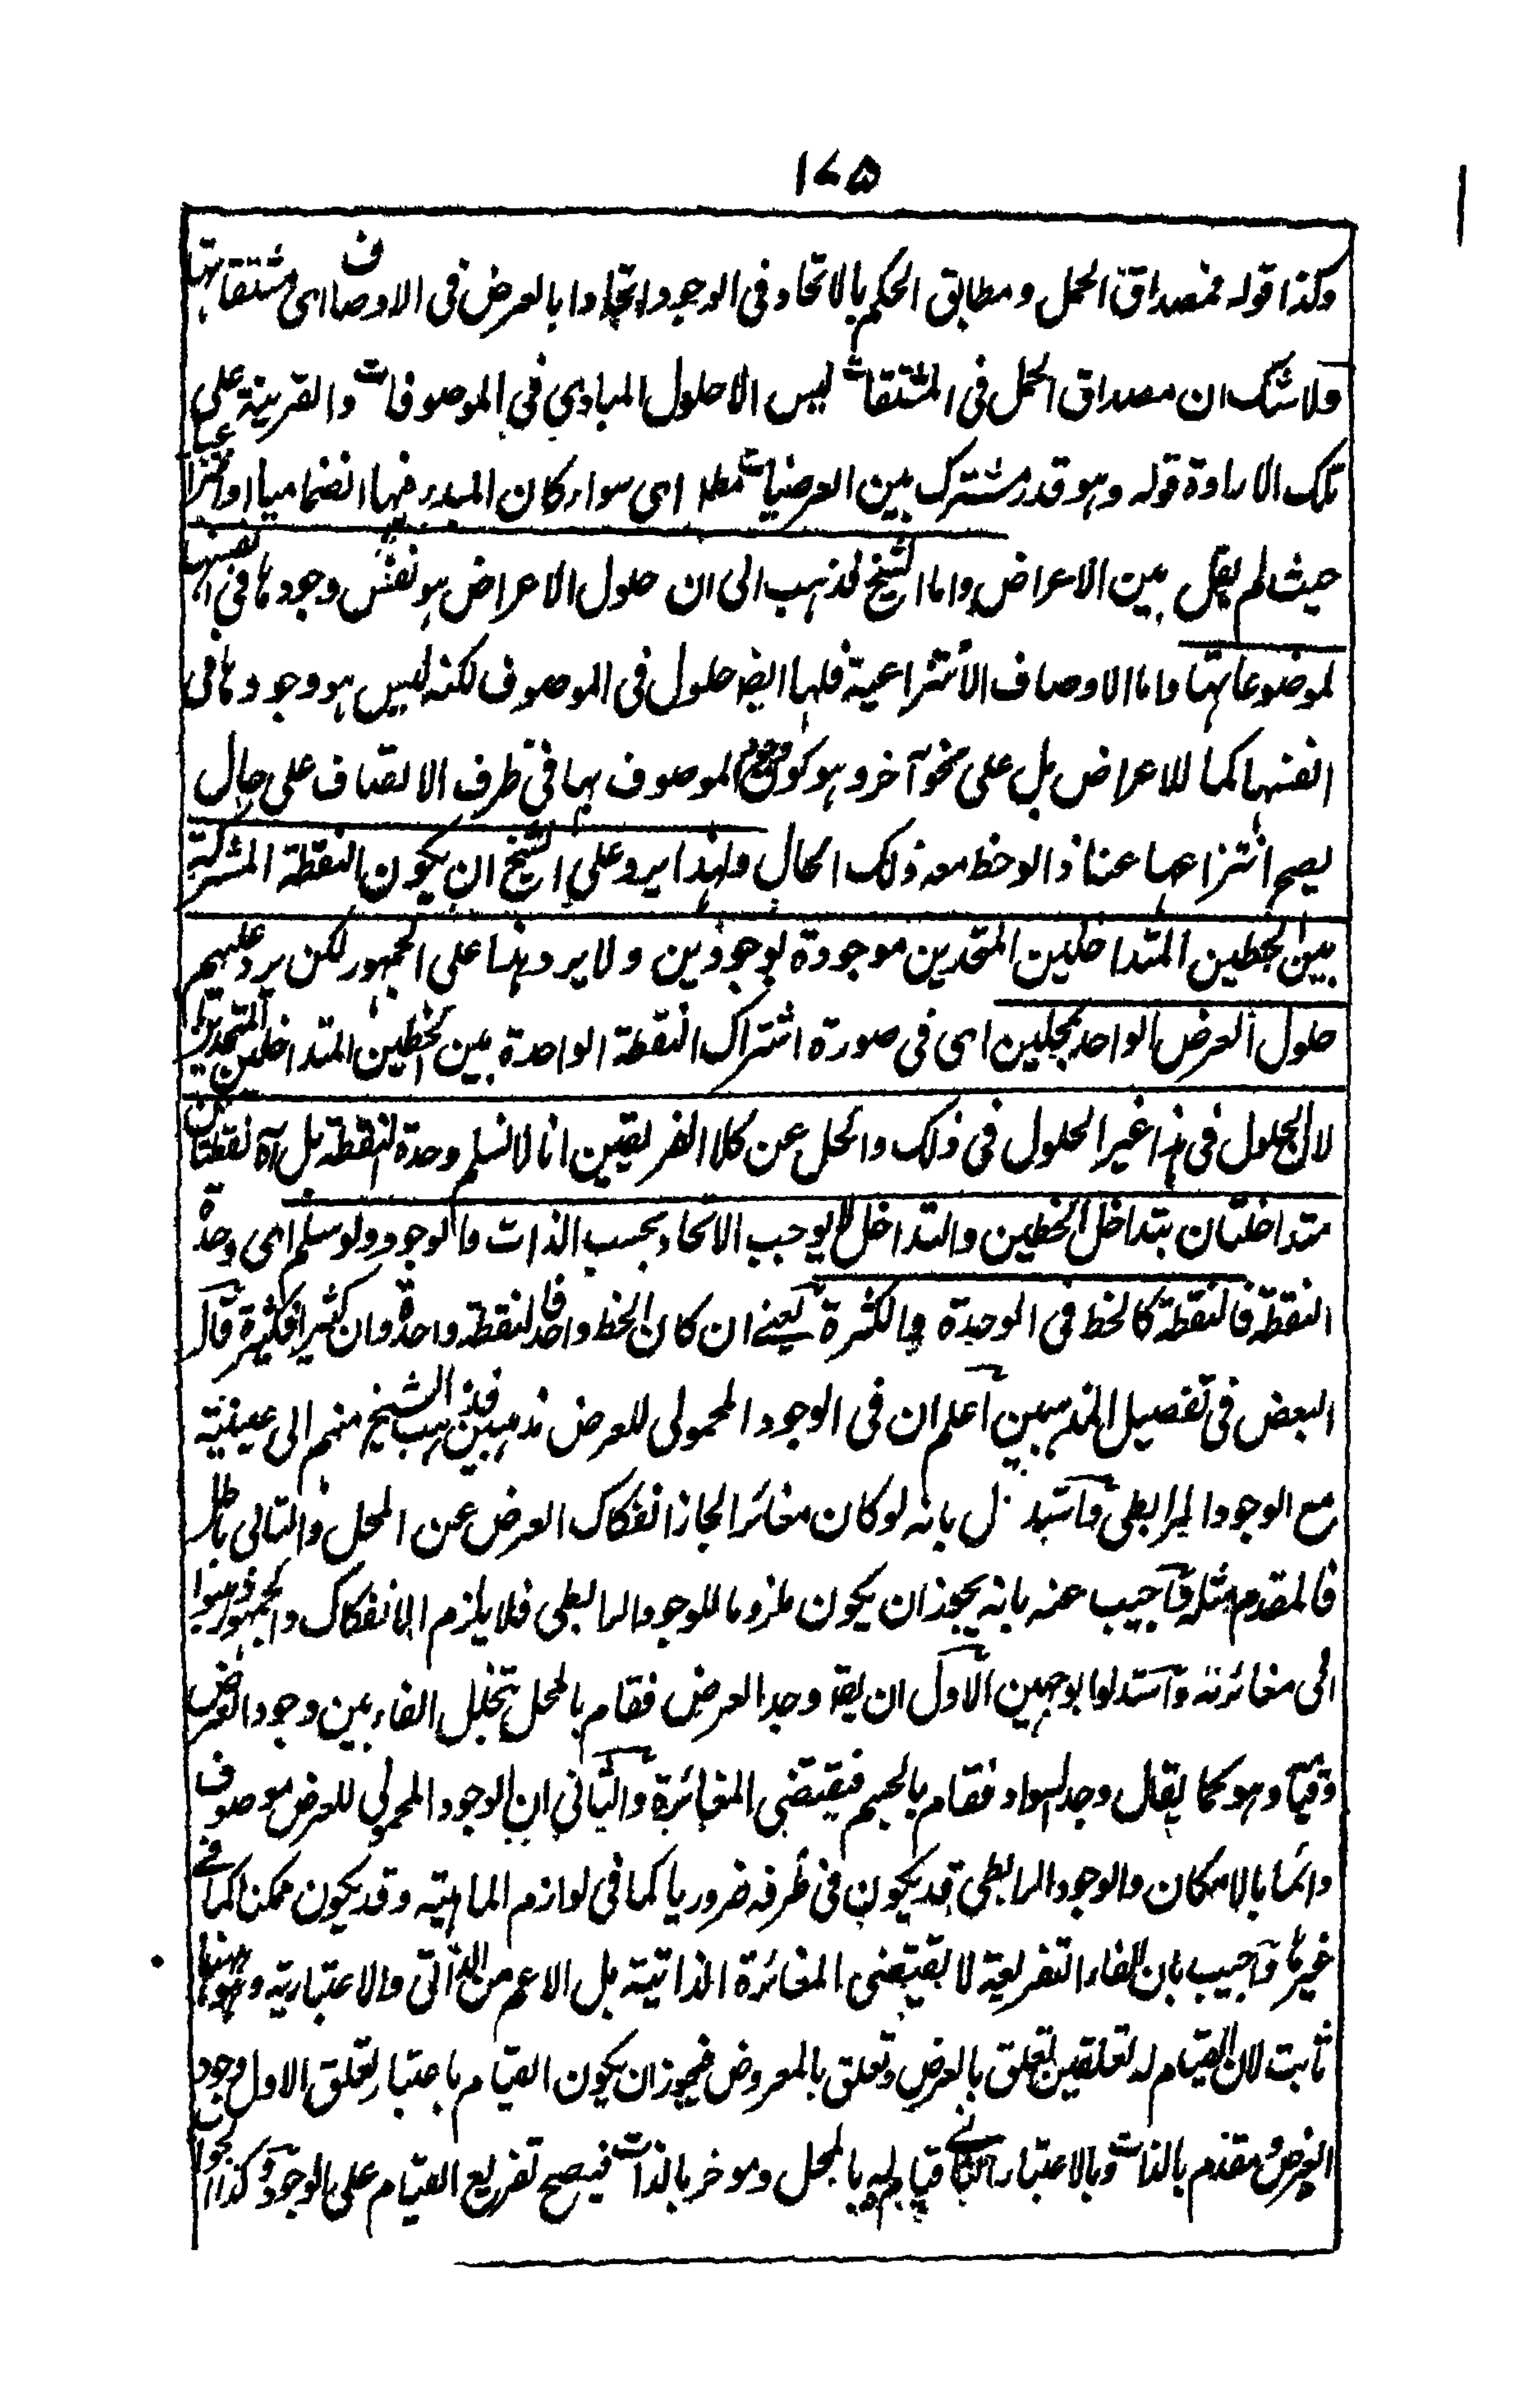 ١٧٥
وكذا قوله فمصداق الحمل ومطابق الحكم بالاتحاد فى الوجود اتحادا بالعرض فى الاوصاف اى مشتقاتها
ولا شك ان مصداق الحمل فى المشتقات ليس الا حلول المبادى فى الموصوفات والقرينة على
تلك الارادة قوله وهو قدر مشترك بين العرضيات مطلقا اى سواء كان المبدء فيها انضماميا او انتزاعيا
حيث لم يقل بين الاعراض واما الشيخ فذهب الى ان حلول الاعراض هو نفس وجودها فى انفسها
لموضوعاتها واما الاوصاف الانتزاعية فلها ايضا حلول فى الموصوف لكنه ليس هو وجودها فى
انفسها كما للاعراض بل على نحو آخر وهو كون وجود الموصوف بها فى ظرف الاتصاف على حال
يصح انتزاعها عنه اذا لوحظ معه ذلك الحال ولهذا يرد على الشيخ ان يكون النقطة المشتركة
بين الخطين المتداخلين المتحدين موجودة بوجودين ولا يرد هذا على الجمهور لكن يرد عليهم
حلول العرض الواحد بمحلين اى فى صورة اشتراك النقطة الواحدة بين الخطين المتداخلين المتحدين
لان الحلول فى هذا غير الحلول فى ذلك والحل عن كلا الفريقين انا لا نسلم وحدة النقطة بل آه نقطتان
متداخلتان بتداخل الخطين والتداخل لا يوجب الاتحاد بحسب الذات والوجود ولو سلم اى وحدة
النقطة فالنقطة كالخط فى الوحدة والكثرة يعنى ان كان الخط واحدا فالنقطة واحدة وان كثيرا فكثيرة قال
البعض فى تفصيل المذهبين اعلم ان فى الوجود المحمولى للعرض مذهبين فذهب الشيخ منهم الى عينيته
مع الوجود الرابطى واستدل بانه لو كان مغائرا لجاز انفكاك العرض عن المحل والتالى باطل
فالمقدم مثله واجيب عنه بانه يجوز ان يكون ملزوما للوجود الرابطى فلا يلزم الانفكاك والجمهور ذهبوا
الى مغائرته واستدلوا بوجهين الاول ان يقال وجد العرض فقام بالمحل بتخلل الفاء بين وجود العرض
وقيامه وهو كما يقال وجد السواد فقام بالجسم فيقتضى المغائرة والثانى ان الوجود المحمولى للعرض موصوف
دائما بالامكان والوجود الرابطى قد يكون فى ظرفه ضروريا كما فى لوازم الماهية وقد يكون ممكنا كما فى
غيرها واجيب بان الفاء التفريعية لا يقتضى المغائرة الذاتية بل الاعم من الذاتى والاعتبارية وهو ههنا
ثابت لان القيام له تعلقين تعلق بالعرض وتعلق بالمعروض فيجوز ان يكون القيام باعتبار تعلق الاول وجود
العرض مقدم بالذات وبالاعتبار الثانى قيامه بالمحل وموخر بالذات فيصح تفريع القيام على الوجود وكذا الجواب